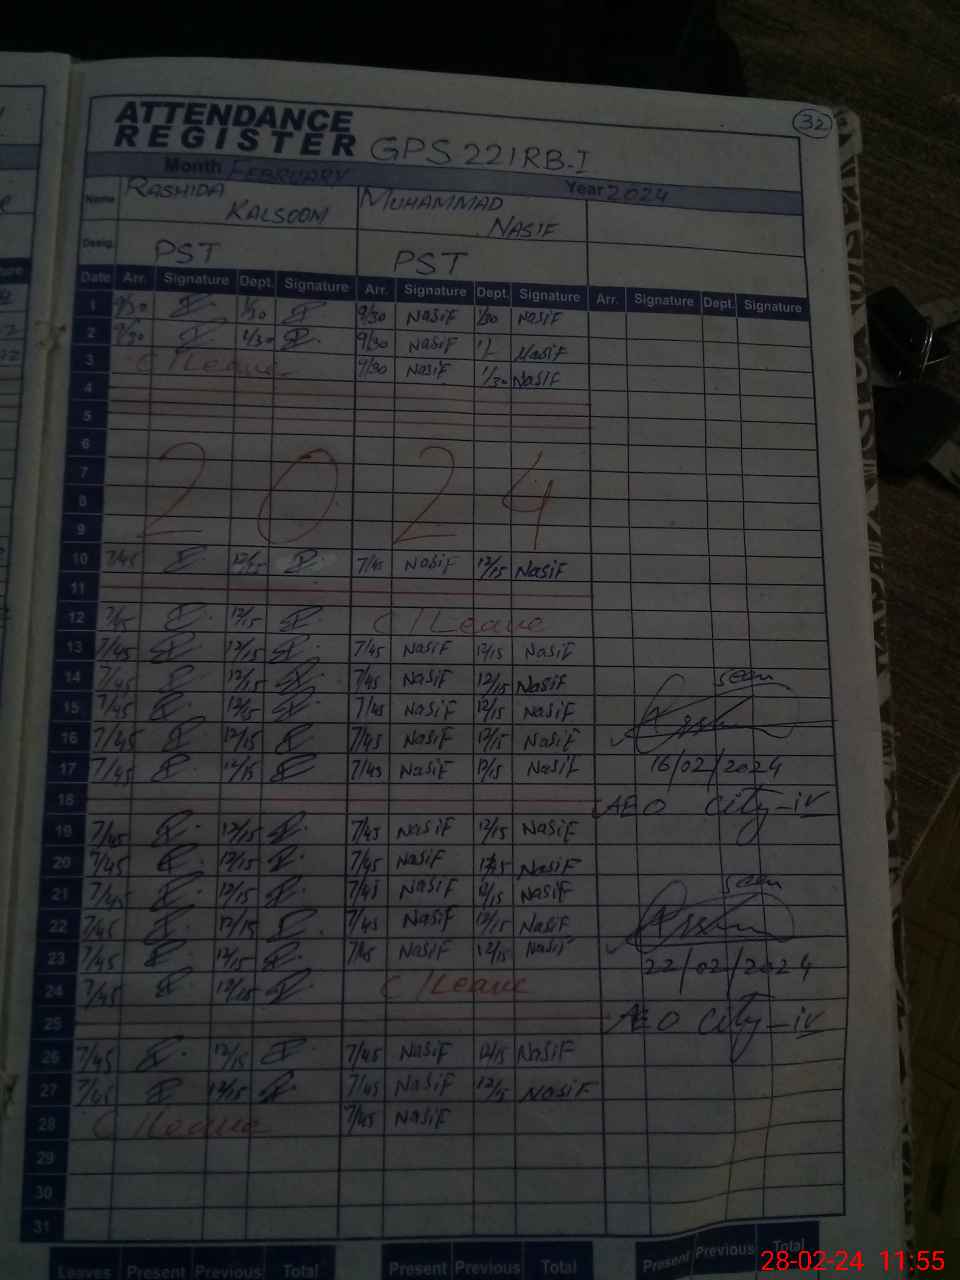 32
ATTENDANCE
REGISTER GPS 221RB-I
Month FEBRUARY Year 2024
Name RASHIDA KALSOOM MUHAMMAD NASIF
Desig. PST PST
Date Arr. Signature Dept. Signature Arr. Signature Dept. Signature Arr. Signature Dept. Signature
1 9/30 1/30 9/30 NASIF 1/30 NASIF
2 9/30 1/30 9/30 NASIF NASIF
3 C/Leave 9/30 NASIF 1/30 NASIF
4
5
6
7 2024
8
9
10 7/45 12/15 7/45 NASIF 12/15 NASIF
11
12 12/15 C/Leave
13 7/45 12/15 7/45 NASIF 12/15 NASIF
14 7/45 12/15 7/45 NASIF 12/15 NASIF seen
15 7/45 12/15 7/45 NASIF 12/15 NASIF
16 7/45 12/15 7/45 NASIF 12/15 NASIF
17 7/45 12/15 7/45 NASIF 12/15 NASIF 16/02/2024
18 AEO City-iv
19 7/45 12/15 7/45 NASIF 12/15 NASIF
20 7/45 12/15 7/45 NASIF 12/15 NASIF
21 7/45 12/15 7/45 NASIF 12/15 NASIF seen
22 7/45 12/15 7/45 NASIF 12/15 NASIF
23 7/45 12/15 7/45 NASIF 12/15 NASIF 22/02/2024
24 7/45 12/15 C/Leave
25 AEO City-iv
26 7/45 12/15 7/45 NASIF 12/15 NASIF
27 7/45 12/15 7/45 NASIF 12/15 NASIF
28 C/Leave 7/45 NASIF
29
30
31
Leaves Present Previous Total Present Previous Total Present Previous Total
28-02-24 11:55